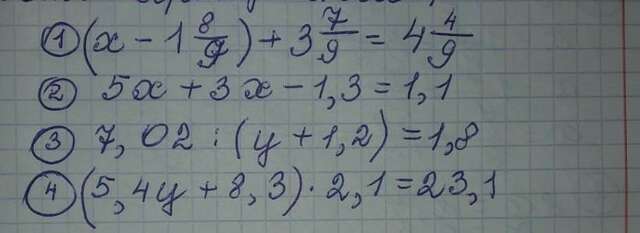 ① (x - 1 8/9) + 3 7/9 = 4 4/9
② 5x + 3x - 1,3 = 1,1
③ 7,02 : (y + 1,2) = 1,8
④ (5,4y + 8,3) · 2,1 = 23,1